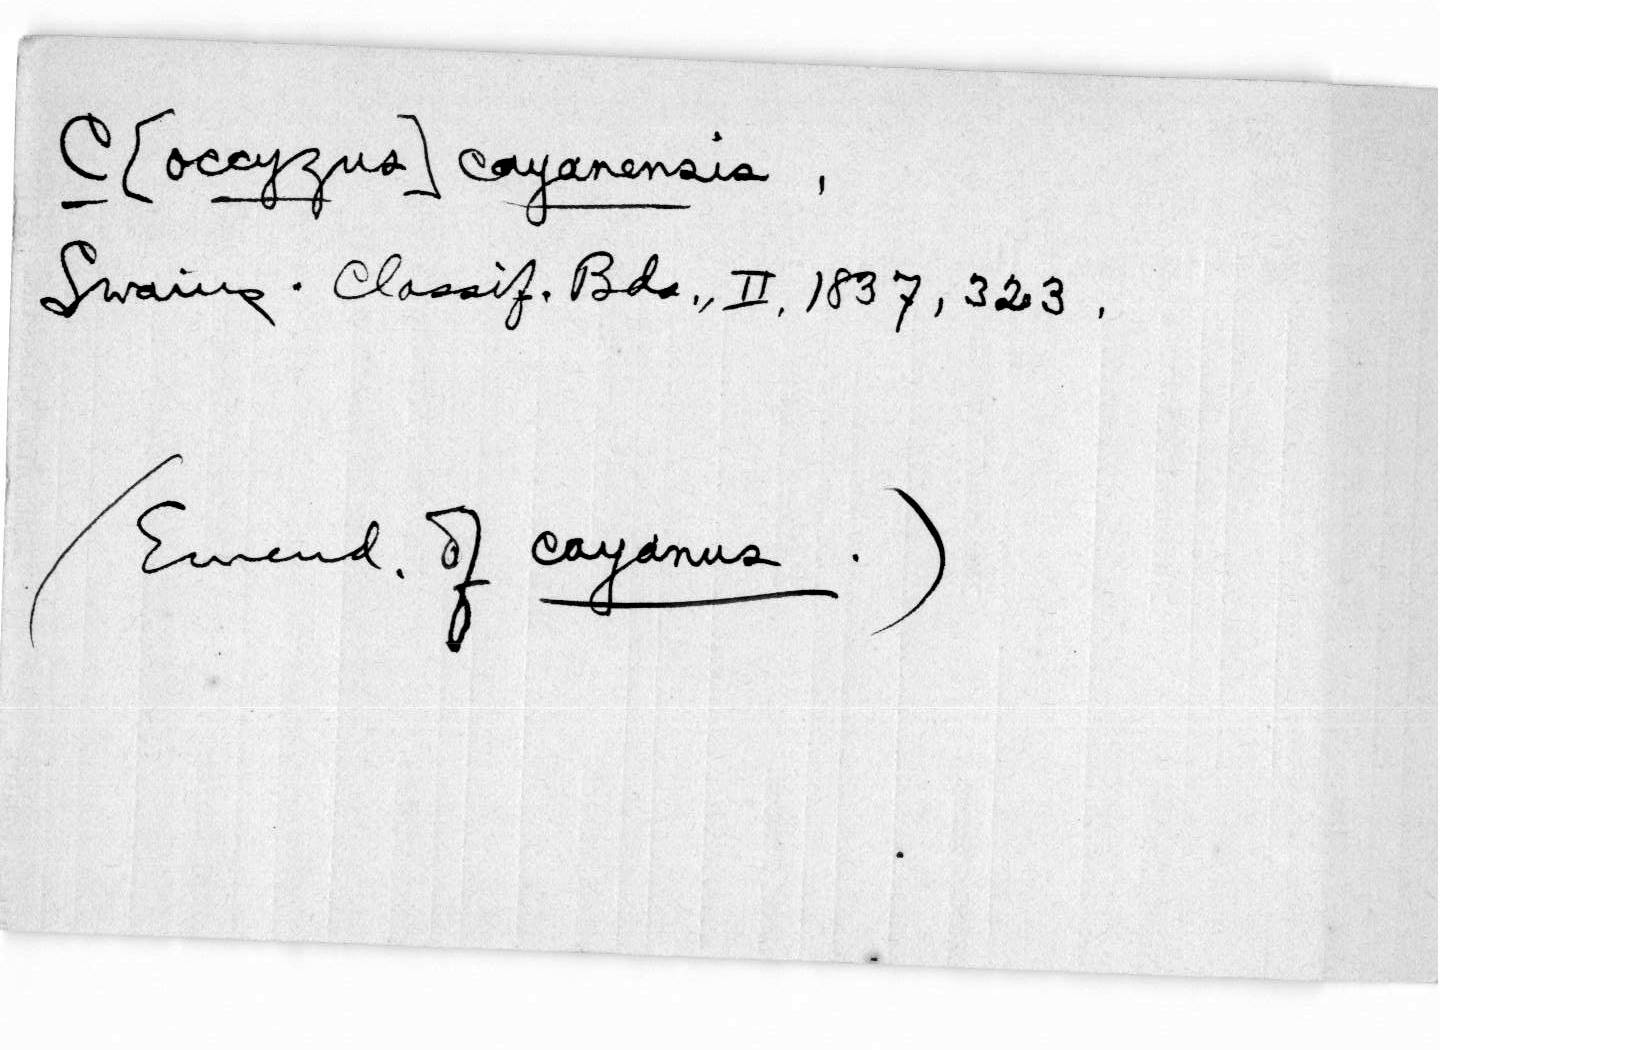 C[occyzus] cayanensis,
Swains. Classif. Bds., II, 1837, 323.
(Emend. of cayanus.)